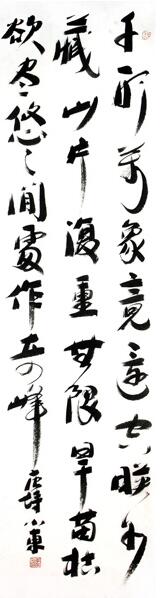 千形萬象竟還空映水
藏山片復重無限旱苗枯
欲盡悠々閒處作奇峰 唐詩